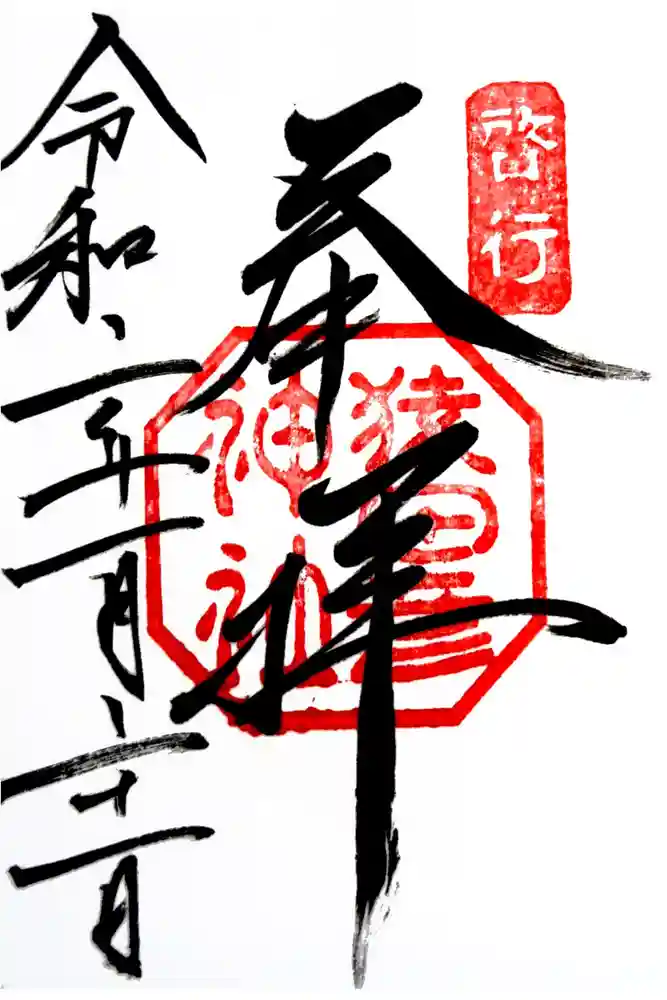 啓行
奉拝
猿田彦
神社
令和二年一月二十一日